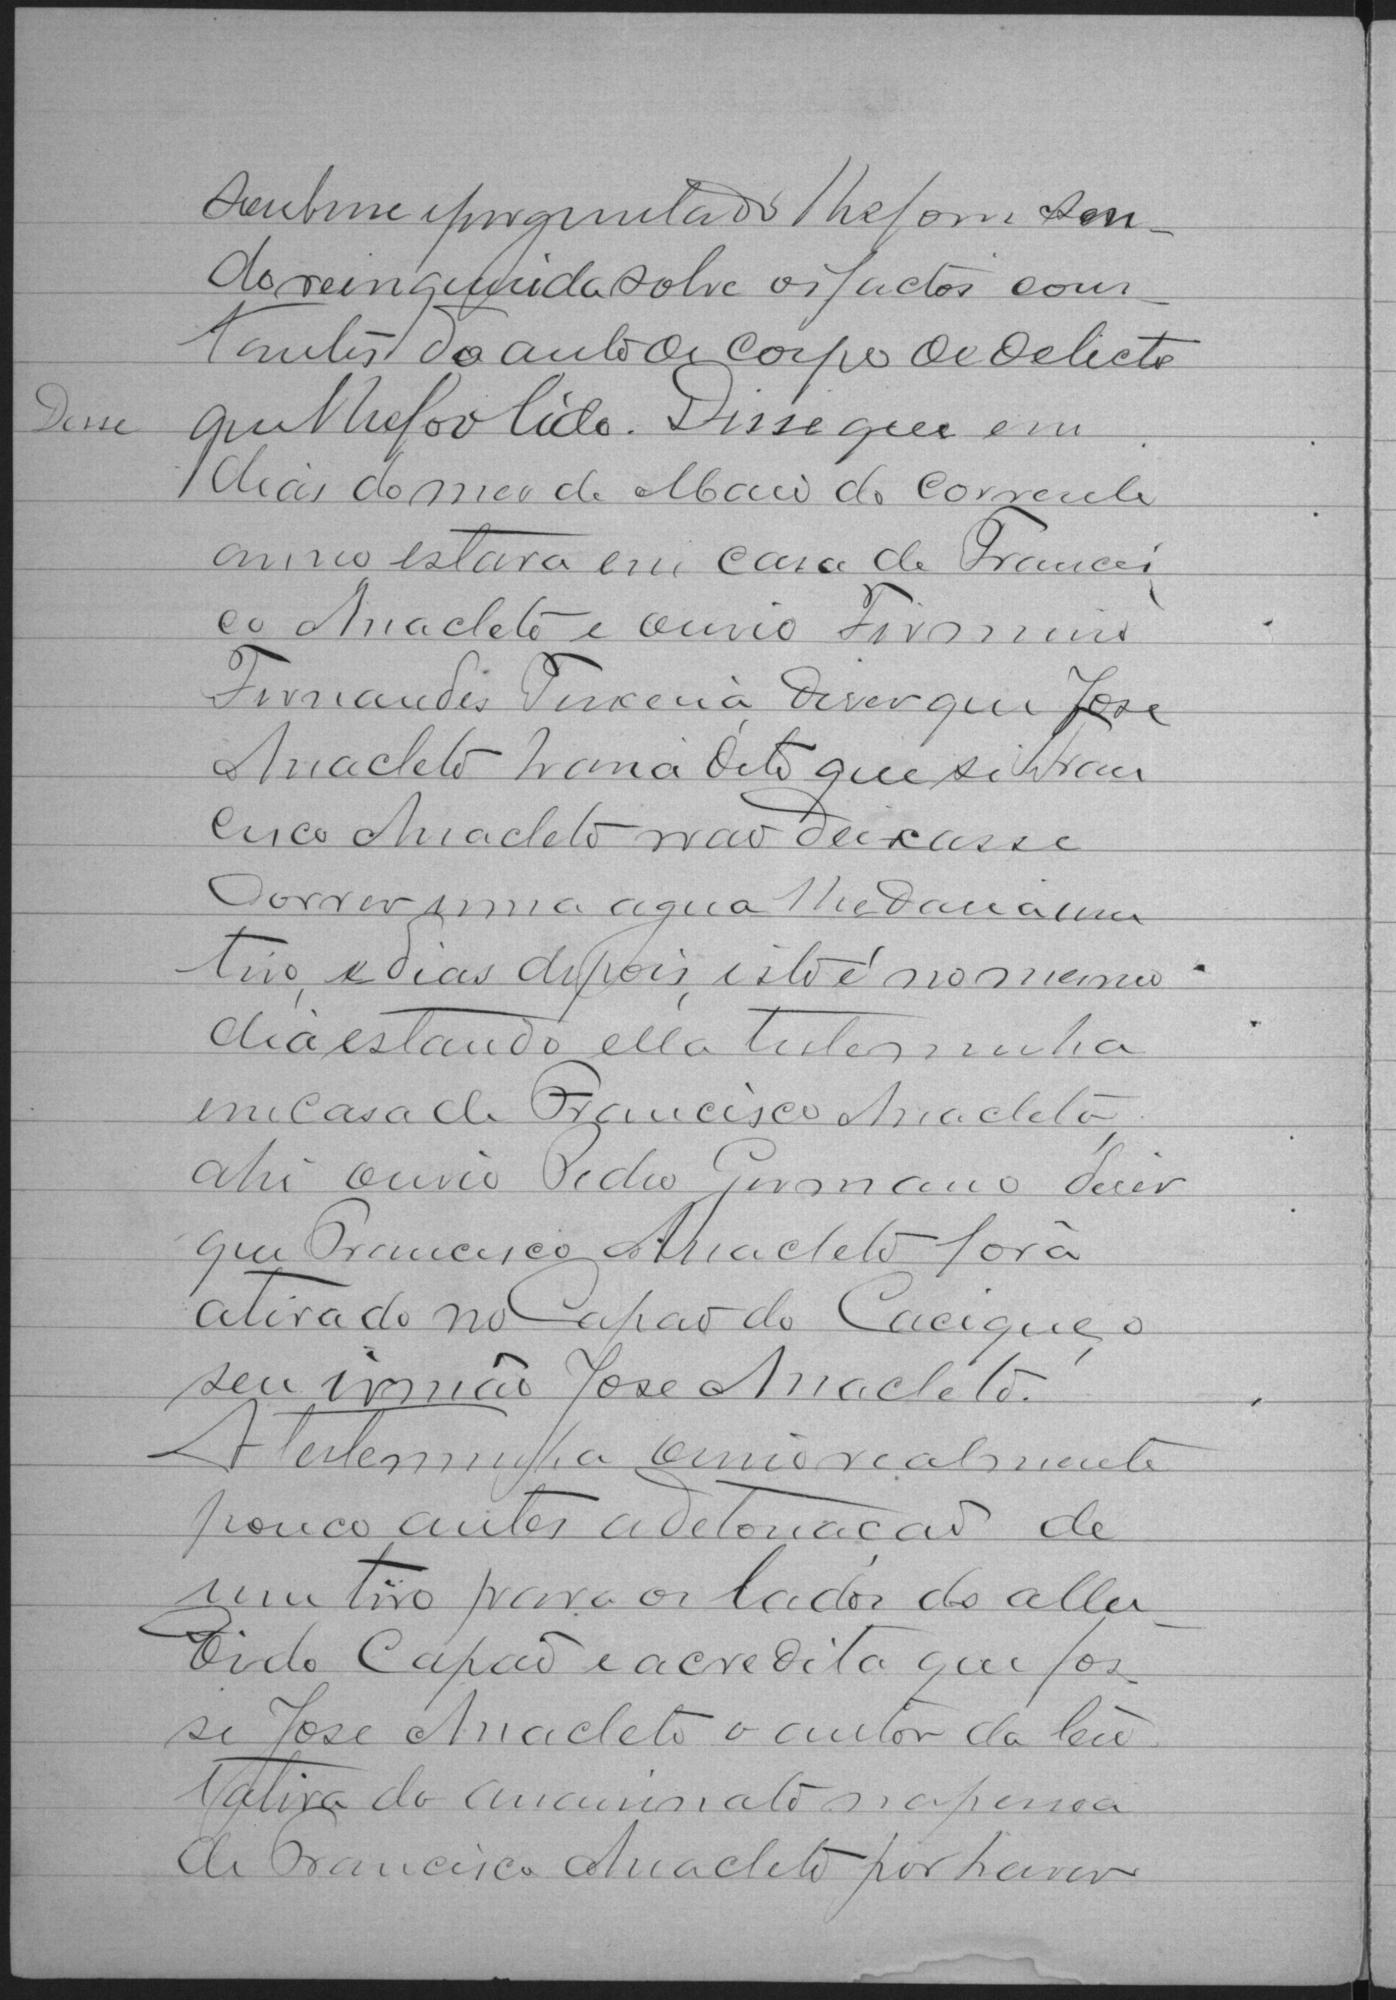 soubesse e perguntado lhe fosse sen-
do reinquirida sobre os factos cons-
tantes do auto de corpo de delicto
Disse
que lhe foi lido. Disse que em
dias do mez de Maio do corrente
anno estava em casa de Francis
co Anacleto e ouvio Firmino
Fernandes Teixeira diser que Jose
Anacleto havia dito que si Fran
cisco Anacleto não deixasse
correr uma agua lhe daria um
tiro, e dias depois, isto é no mesmo
dia estando ella testemunha
em casa de Francisco Anacleto,
ahi ouvio Pedro Germano diser
que Francisco Anacleto fora
atirado no Capão do Cacique, o
seu irmão Jose Anacleto.
A testemunha ouvio realmente
pouco antes a detonação de
um tiro para os lados do allu-
dido Capão e acredita que fos-
se Jose Anacleto o autor da ten
tativa de assassinato na pessoa
de Francisco Anacleto por haver